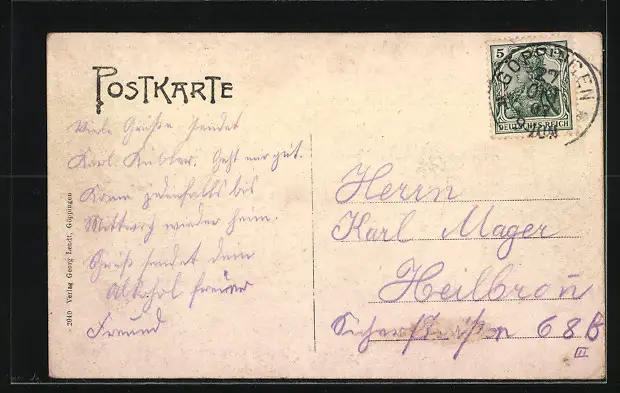 POSTKARTE
Viele Grüße sendet
Karl Kübler. Geht mir gut.
Komme jedenfalls bis
Mittwoch wieder heim.
Gruß sendet dein
Alkohol freier
Freund
2040 Verlag Georg Lendt, Göppingen
5
DEUTSCHES REICH
GÖPPINGEN
27
Herrn
Karl Mager
Heilbron̄
68 B
III